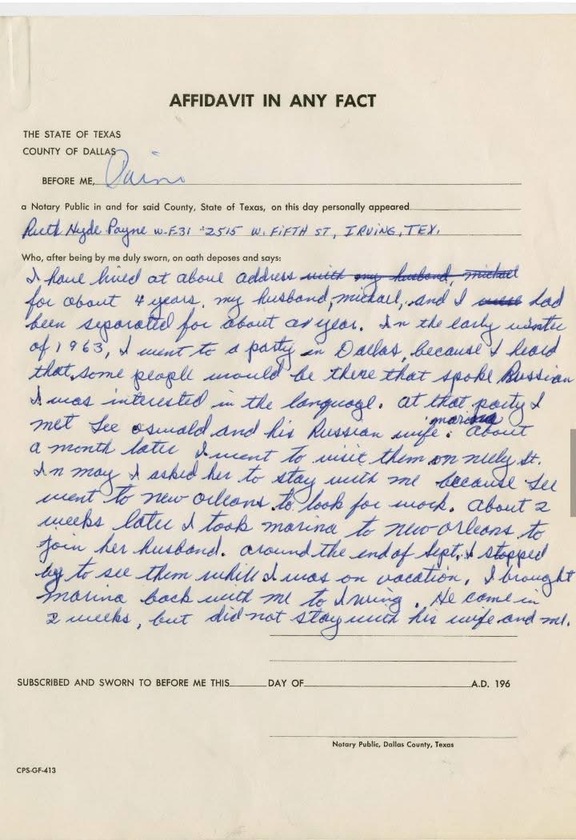 AFFIDAVIT IN ANY FACT
THE STATE OF TEXAS
COUNTY OF DALLAS
BEFORE ME, Paine
a Notary Public in and for said County, State of Texas, on this day personally appeared
Ruth Hyde Payne w-F-31 #2515 W. FIFTH ST, IRVING, TEX.
Who, after being by me duly sworn, on oath deposes and says:
I have lived at above address with my husband, michael
for about 4 years. my husband, michael, and I had
been separated for about a year. In the early winter
of 1963, I went to a party in Dallas, because I heard
that some people would be there that spoke Russian
I was interested in the language. at that party I
met Lee oswald and his Russian wife marina. About
a month later I went to visit them on neely st.
In may I asked her to stay with me because Lee
went to new orleans to look for work. about 2
weeks later I took marina to new orleans to
join her husband. around the end of Sept. I stopped
by to see them while I was on vacation. I brought
marina back with me to Irving. He came in
2 weeks, but did not stay with his wife and me.
SUBSCRIBED AND SWORN TO BEFORE ME THIS DAY OF A.D. 196
Notary Public, Dallas County, Texas
CPS-GF-413